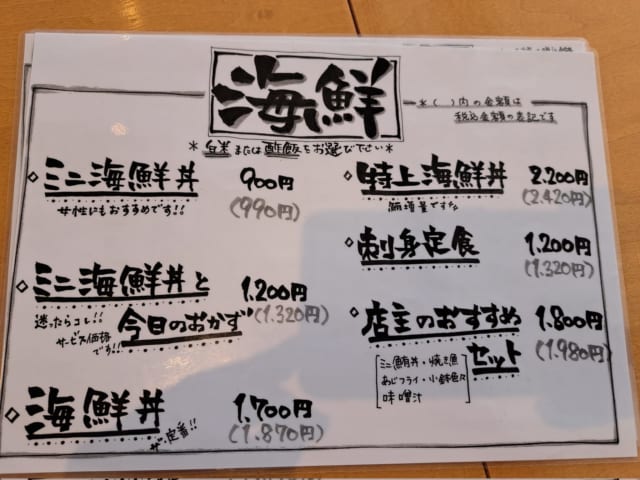 海鮮
*( )内の金額は
税込金額の表記です
*白米または酢飯をお選び下さい*
ミニ海鮮丼 900円
女性にもおすすめです!! (990円)
ミニ海鮮丼と 1.200円
迷ったらコレ!! 今日のおかず (1.320円)
サービス価格
です!!
海鮮丼 1.700円
ザ・定番!! (1.870円)
特上海鮮丼 2.200円
(2.420円)
刺身定食 1.200円
(1.320円)
店主のおすすめ 1.800円
セット (1.980円)
ミニ鮪丼・焼き魚
あじフライ・小鉢色々
味噌汁